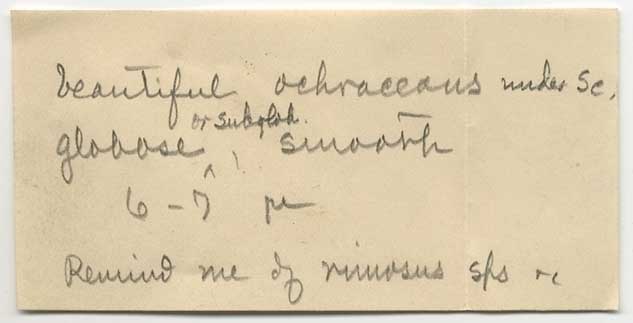 beautiful ochraceous under sc,
or subglob.
globose ^, smooth
6 - 7 µ
Remind me of rimosus sps